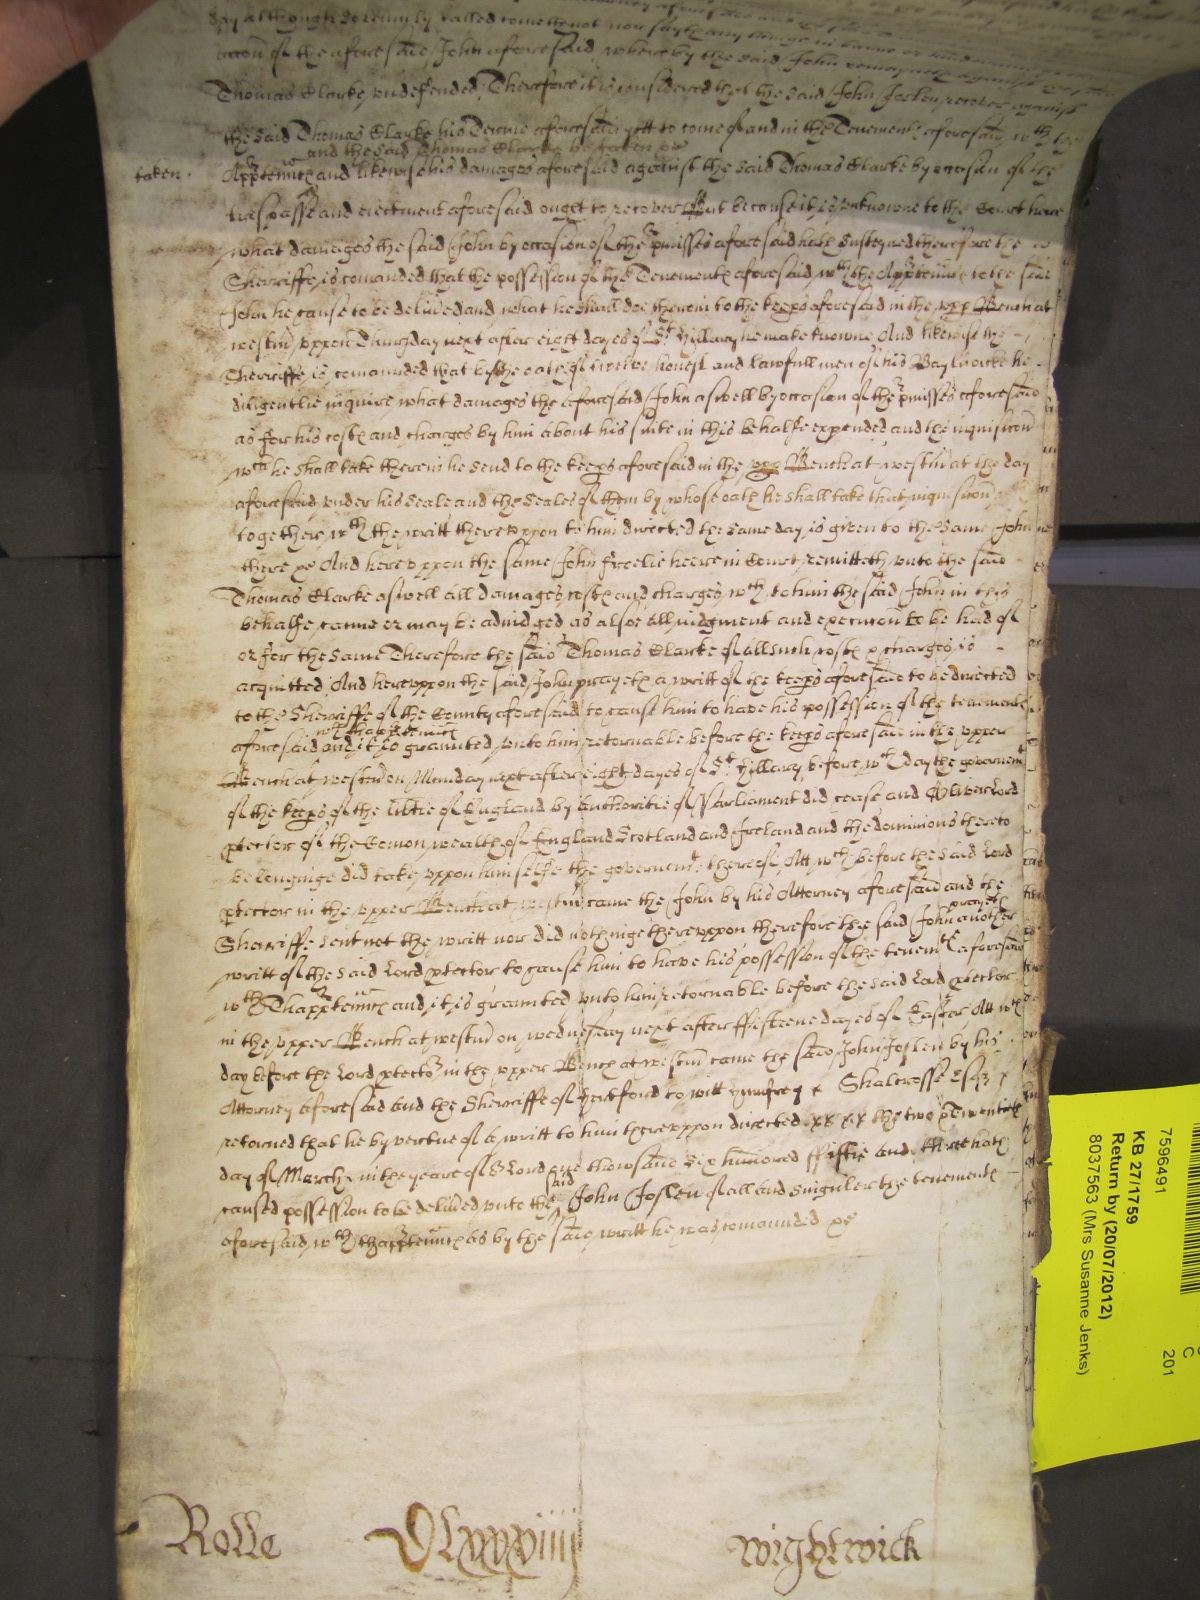 day although solemnly called cometh not nor sayth any thinge in barre or
accon of the aforesaid John aforesaid whereby the said John remayneth against the said
Thomas Clarke undefended Therefore it is considered that the said John Joslen recover against
the said Thomas Clarke his Terme aforesaid yett to come of and in the Tenemts aforesaid wth the
and the said Thomas Clarke be taken &c
taken. Apptenncs and likewise his damages aforesaid against the said Thomas Clarke by occasion of the
trespasse and eiectment aforesaid ought to recover But because it is unknowne to the Court here
what damages the said John by occasion of the pmisses aforesaid hath susteyned therefore the
Sherriffe is comanded that the possession of the Tenements aforesaid wth the Apptenncs to the said
John he cause to be delived and what he shall doe therein to the keeps aforesaid in the upp Bench at
westm uppon Thursday next after eight dayes of St Hillary he make knowne And likewise the
Sherriffe is comanded that by the oath of twelve honest and lawfull men of his Baylywicke he
diligentlie inquire what damages the aforesaid John aswell by occasion of the pmisses aforesaid
as for his costs and charges by him about his suite in this behalfe expended and the inquisicon
wch he shall take therein he send to the keeps aforesaid in the upp Bench at westm at the day
aforesaid under his seale and the seales of them by whose oath he shall take that inquisicon
together wth the writt thereuppon to him directed the same day is given to the same John
there &c And hereuppon the same John freelie heere in Court remitteth unto the said
Thomas Clarke aswell all damages costs and charges wch to him the said John in this
behalfe came or may be adiudged as alsoe all iudgment and execucon to be had of
or for the same Therefore the said Thomas Clarke of all such costs & charges is
acquitted And hereuppon the said John prayeth a writt of the keeps aforesaid to be directed
to the Sherriffe of the County aforesaid to cause him to have his possession of the tenements
wth thapptenncs
aforesaid and it is graunted unto him retornable before the keeps aforesaid in the upper
Bench at westm on Munday next after eight dayes of St Hillary before wch day the governemt
of the keeps of the libtie of England by authoritie of Parliament did cease and Oliver Lord
ptector of the Comonwealth of England Scotland and Ireland and the dominions thereto
belonginge did take uppon himselfe the governemt thereof Att wch before the said Lord
ptector in the upper Bench at westm came the John by his Attorney aforesaid and the
prayeth
Sherriffe sent not the writt nor did nothinge thereuppon therefore the said John another
writt of the said Lord ptector to cause him to have his possession of the tenemts aforesaid
wth Thapptenncs and it is graunted unto him retornable before the said Lord ptector
in the upper Bench at westm on wednesday next after fifteene dayes of Easter Att wch
day before the Lord ptector in the upper Bench at westm came the said John Joslen by his
Attorney aforesaid And the Sherriffe of Hertford to witt Shalcrosse Esqr
retorned that he by vertue of a writt to him thereuppon directed the two & Twentieth
day of March in the yeare of or Lord one thowsand six hundred fiftie and three hath
said
caused possession to be delived unto the John Joslen of all and singuler the tenements
aforesaid wth thapptenncs as by the said writt he was comanded &c
Rolle DLxxxviiij Wightwick
7596491
KB 27/1759
Return by (20/07/2012)
8037563 (Mrs Susanne Jenks)
C
201